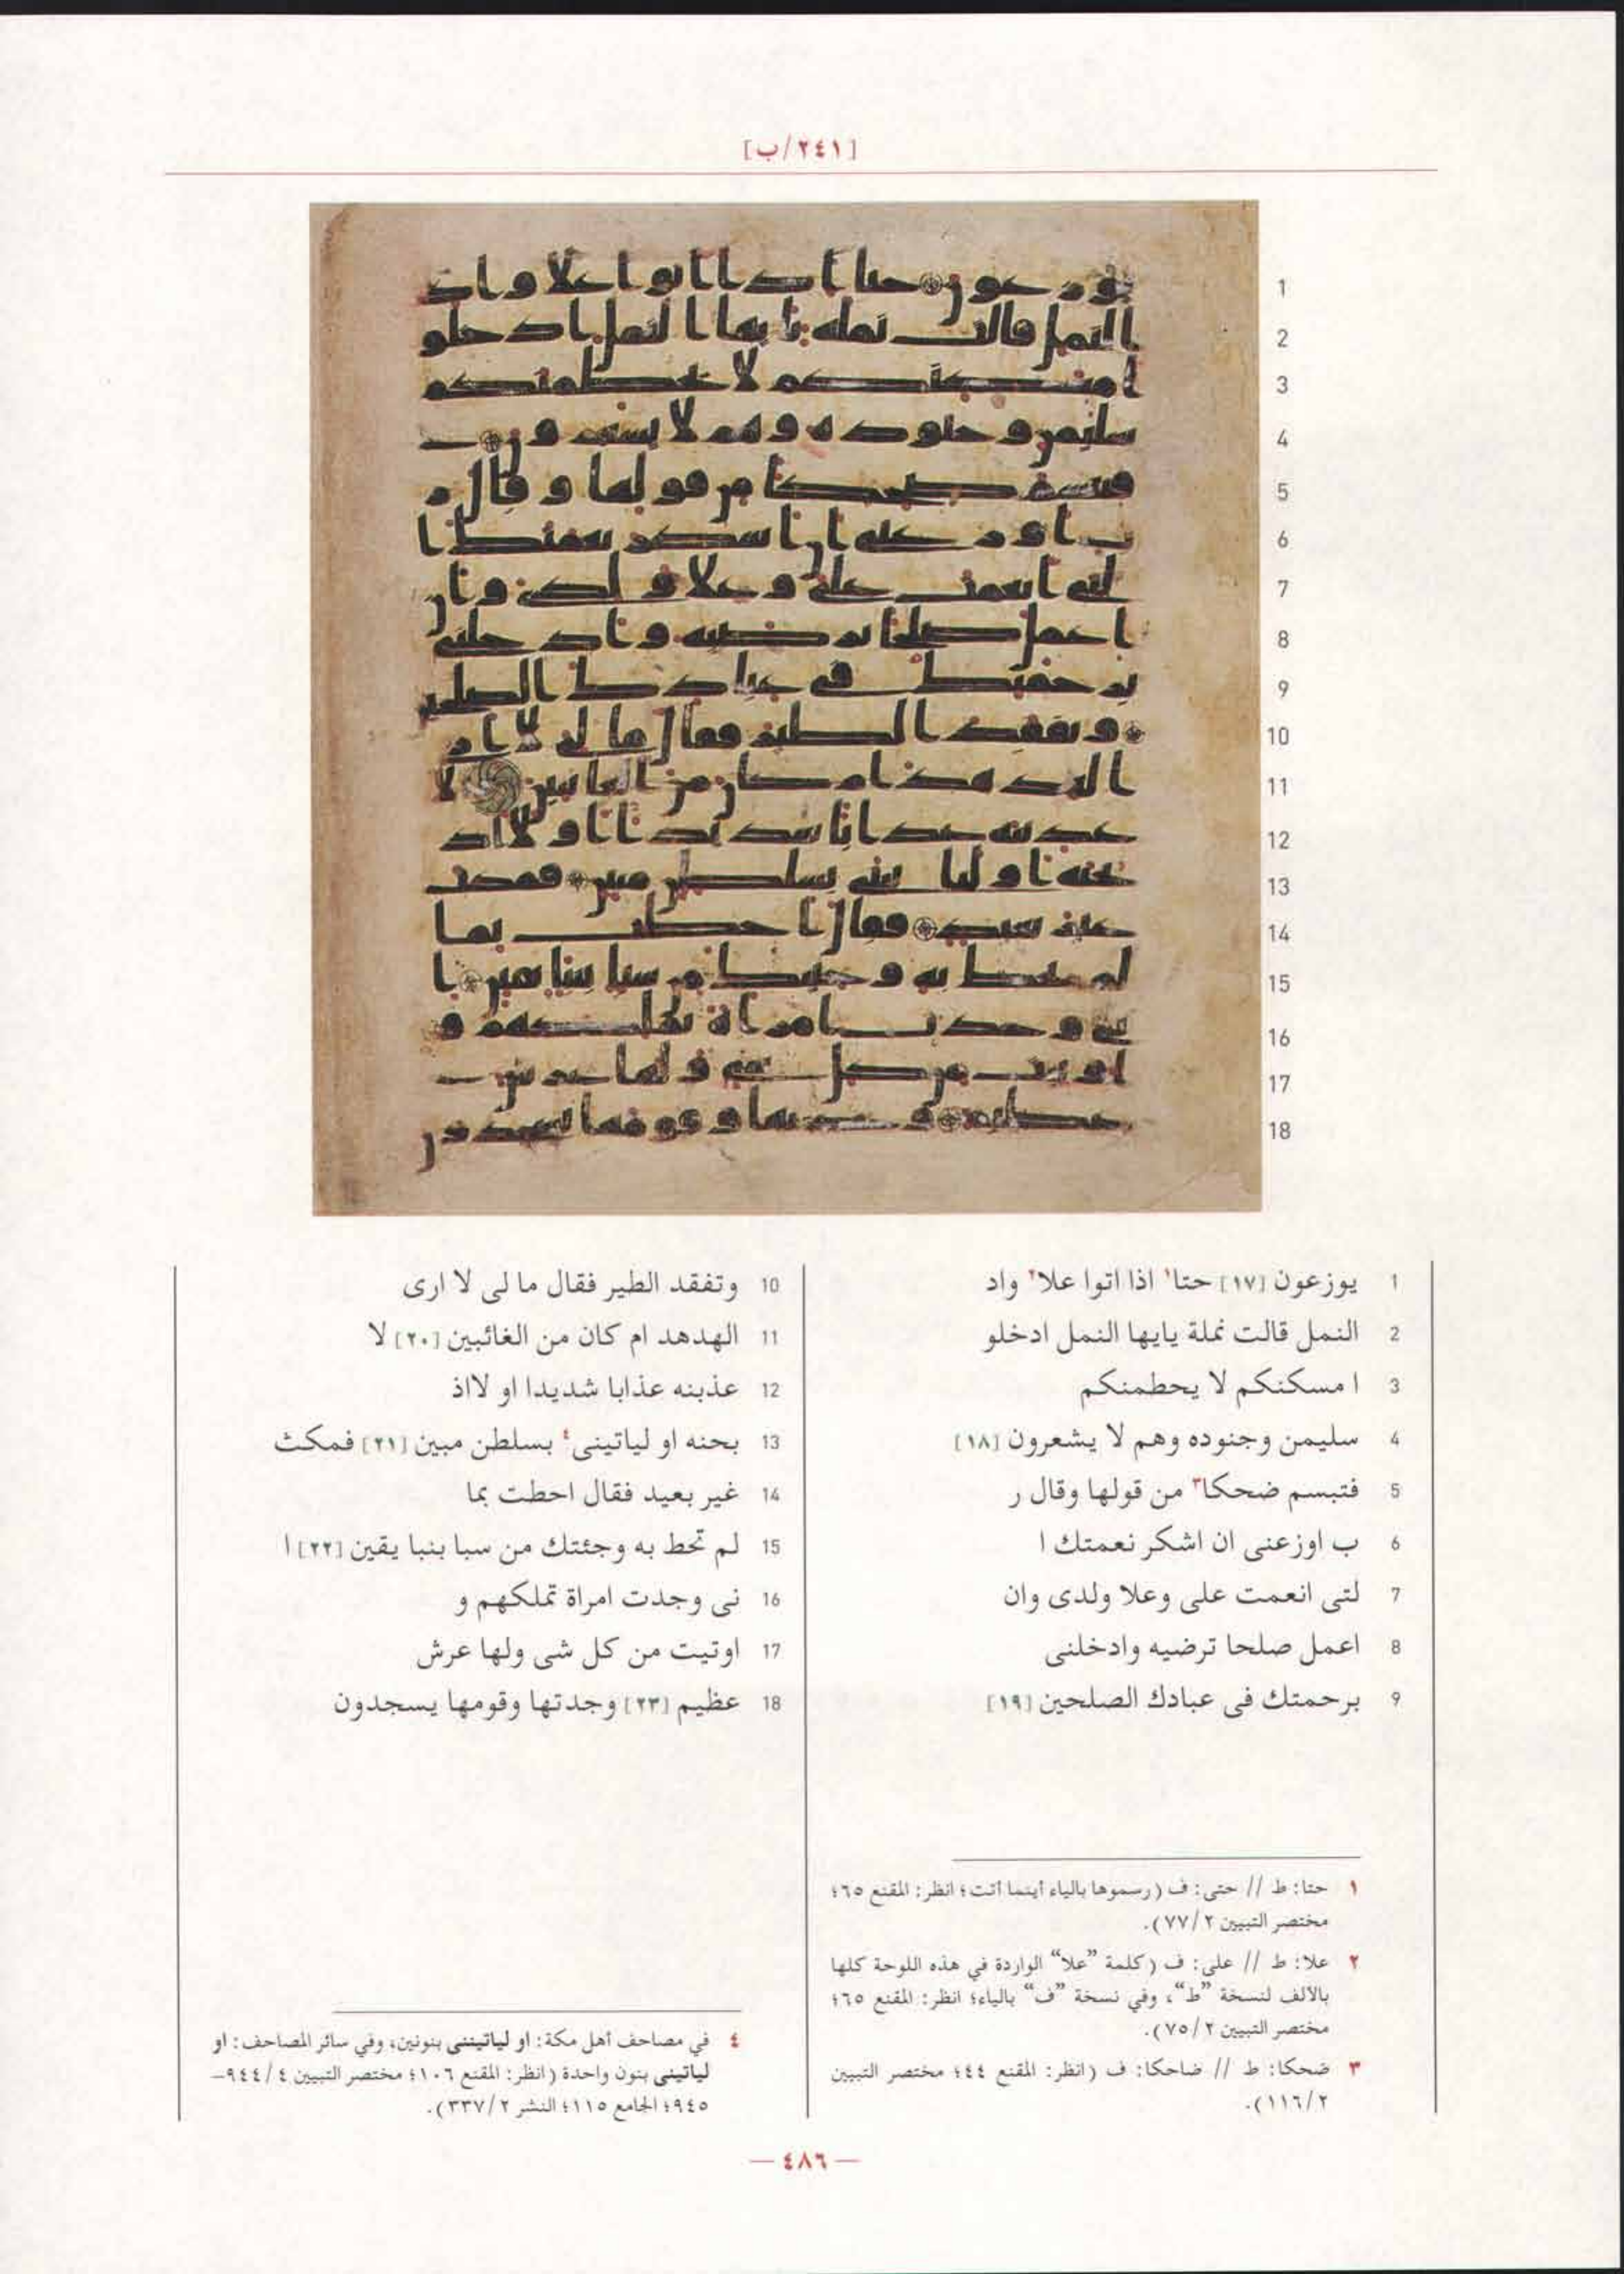 [٢٤١/ب]
1 يوزعون [١٧] حتا١ اذا اتوا علا٢ واد
2 النمل قالت نملة يايها النمل ادخلو
3 ا مسكنكم لا يحطمنكم
4 سليمن وجنوده وهم لا يشعرون [١٨]
5 فتبسم ضحكا٣ من قولها وقال ر
6 ب اوزعنى ان اشكر نعمتك ا
7 لتى انعمت على وعلا ولدى وان
8 اعمل صلحا ترضيه وادخلنى
9 برحمتك فى عبادك الصلحين [١٩]
10 وتفقد الطير فقال ما لى لا ارى
11 الهدهد ام كان من الغائبين [٢٠] لا
12 عذبنه عذابا شديدا او لااذ
13 بحنه او لياتينى٤ بسلطن مبين [٢١] فمكث
14 غير بعيد فقال احطت بما
15 لم تحط به وجئتك من سبا بنبا يقين [٢٢] ا
16 نى وجدت امراة تملكهم و
17 اوتيت من كل شى ولها عرش
18 عظيم [٢٣] وجدتها وقومها يسجدون
١ حتا: ط // حتى: ف (رسموها بالياء أينما أتت؛ انظر: المقنع ٦٥؛
مختصر التبيين ٢/٧٧).
٢ علا: ط // على: ف (كلمة ”علا“ الواردة في هذه اللوحة كلها
بالألف لنسخة ”ط“، وفي نسخة ”ف“ بالياء؛ انظر: المقنع ٦٥؛
مختصر التبيين ٢/٧٥).
٣ ضحكا: ط // ضاحكا: ف (انظر: المقنع ٤٤؛ مختصر التبيين
٢/١١٦).
٤ في مصاحف أهل مكة: او لياتيننى بنونين، وفي سائر المصاحف: او
لياتينى بنون واحدة (انظر: المقنع ١٠٦؛ مختصر التبيين ٤/٩٤٤–
٩٤٥؛ الجامع ١١٥؛ النشر ٢/٣٣٧).
— ٤٨٦ —